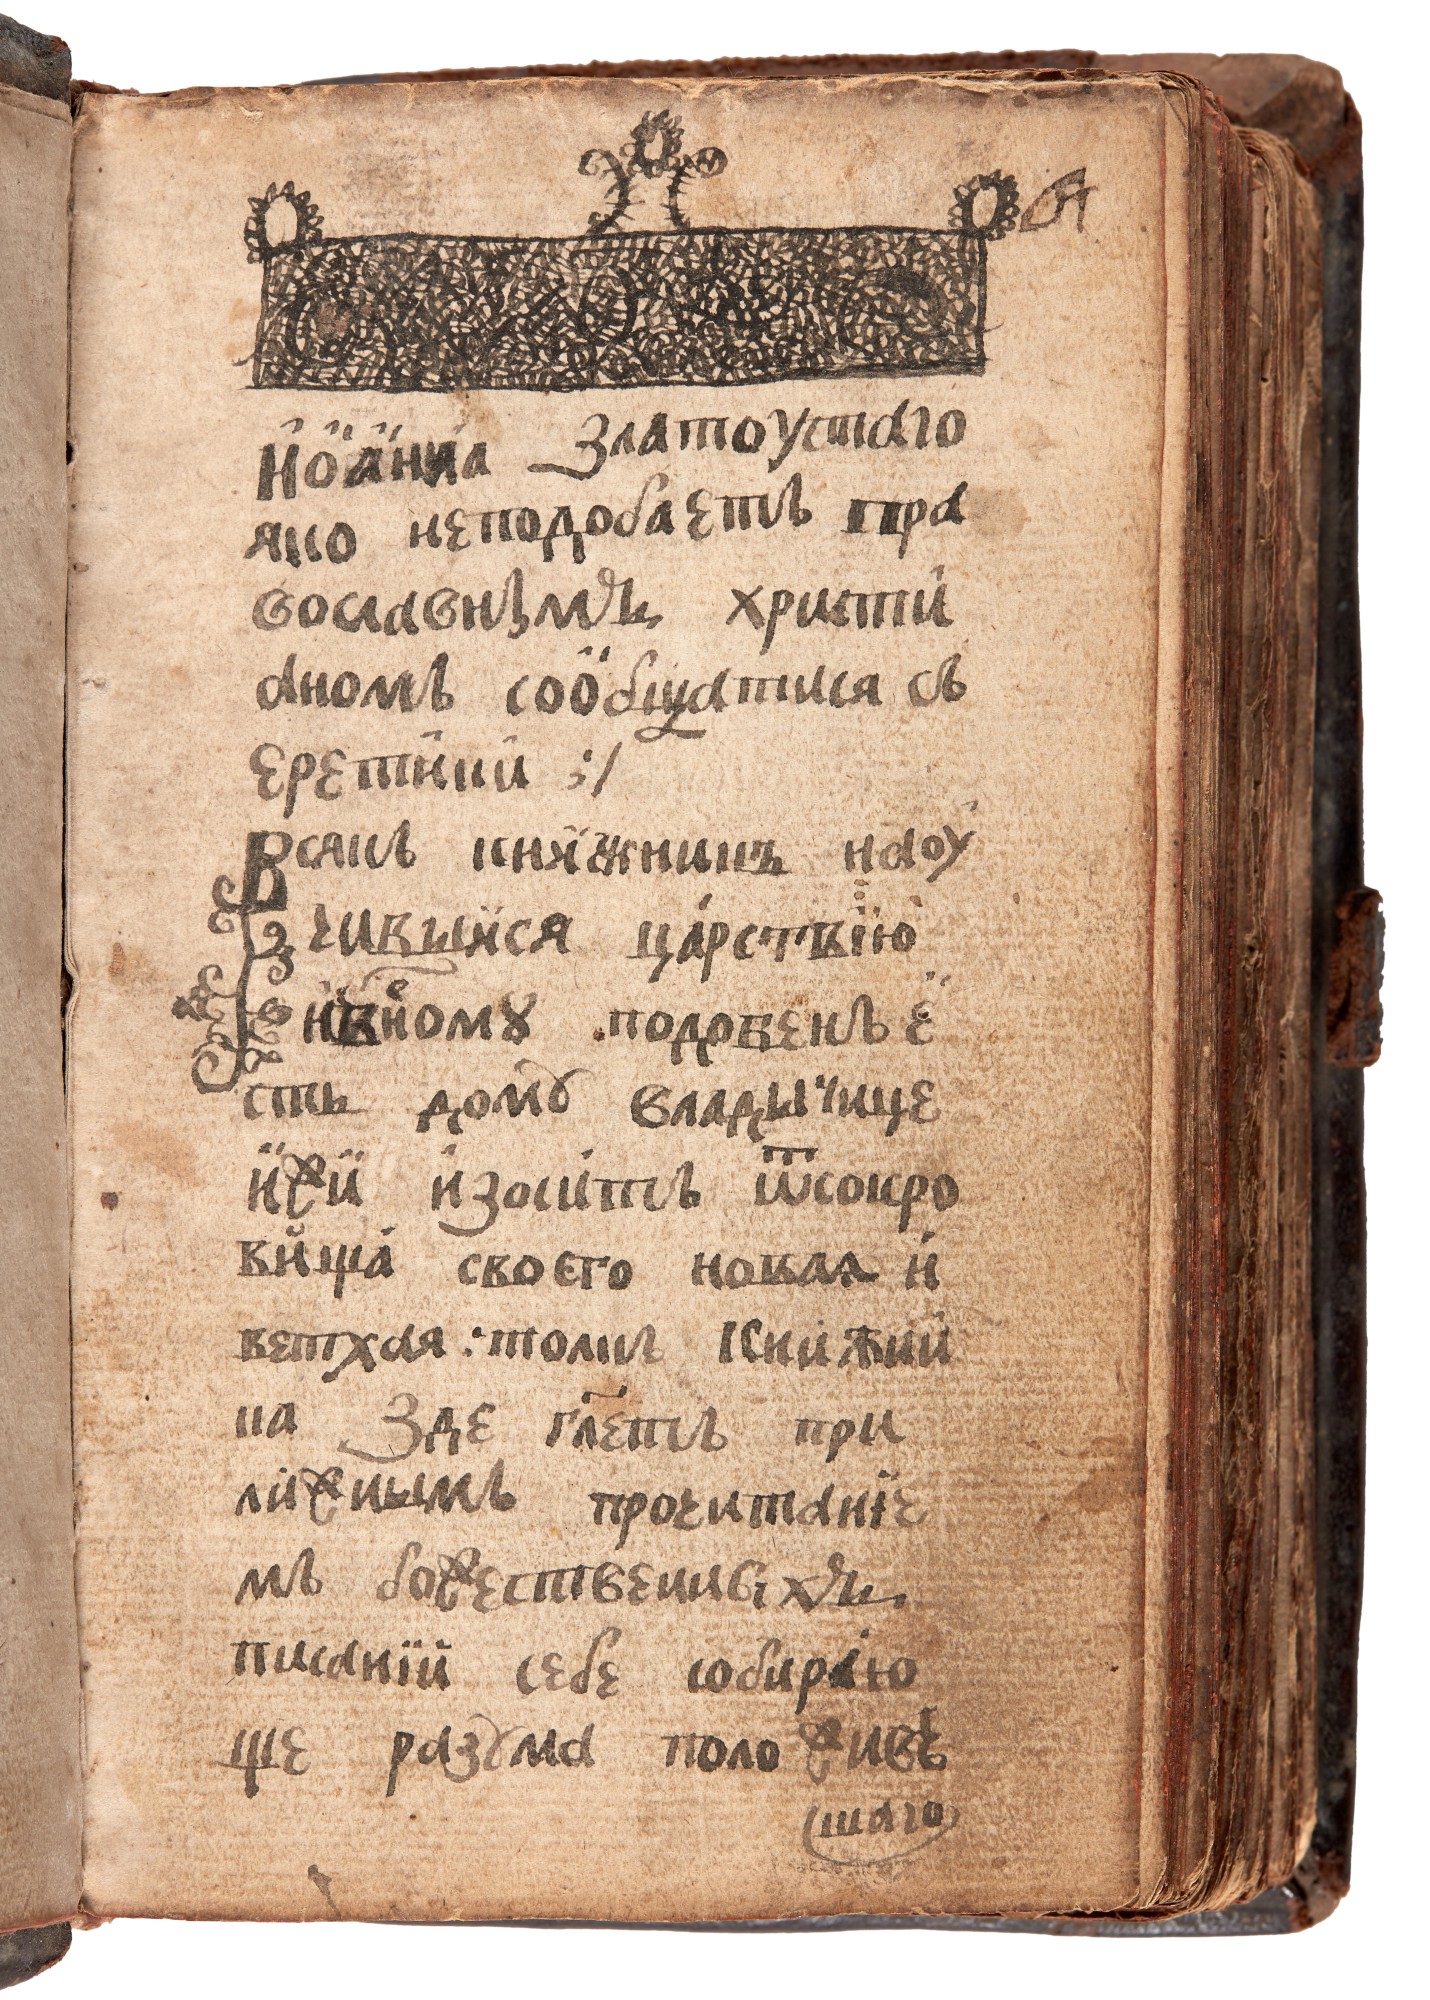 Їѻа́нна Златоустаго
яко неподобаетъ пра
вославнымъ христи
аномъ сообщатися съ
еретики :/
Всякъ книжникъ наоу
чивыйся царствїю
нб҃ному подобенъ е
сть дому владычице
иже износитъ ѿсокро
вища своего новая и
ветхая : толкъ книжни
ка зде гл҃етъ при
лежнымъ прочитанїе
мъ божественныхъ
писанїй себе собираю
ще разума положивъ
шаго